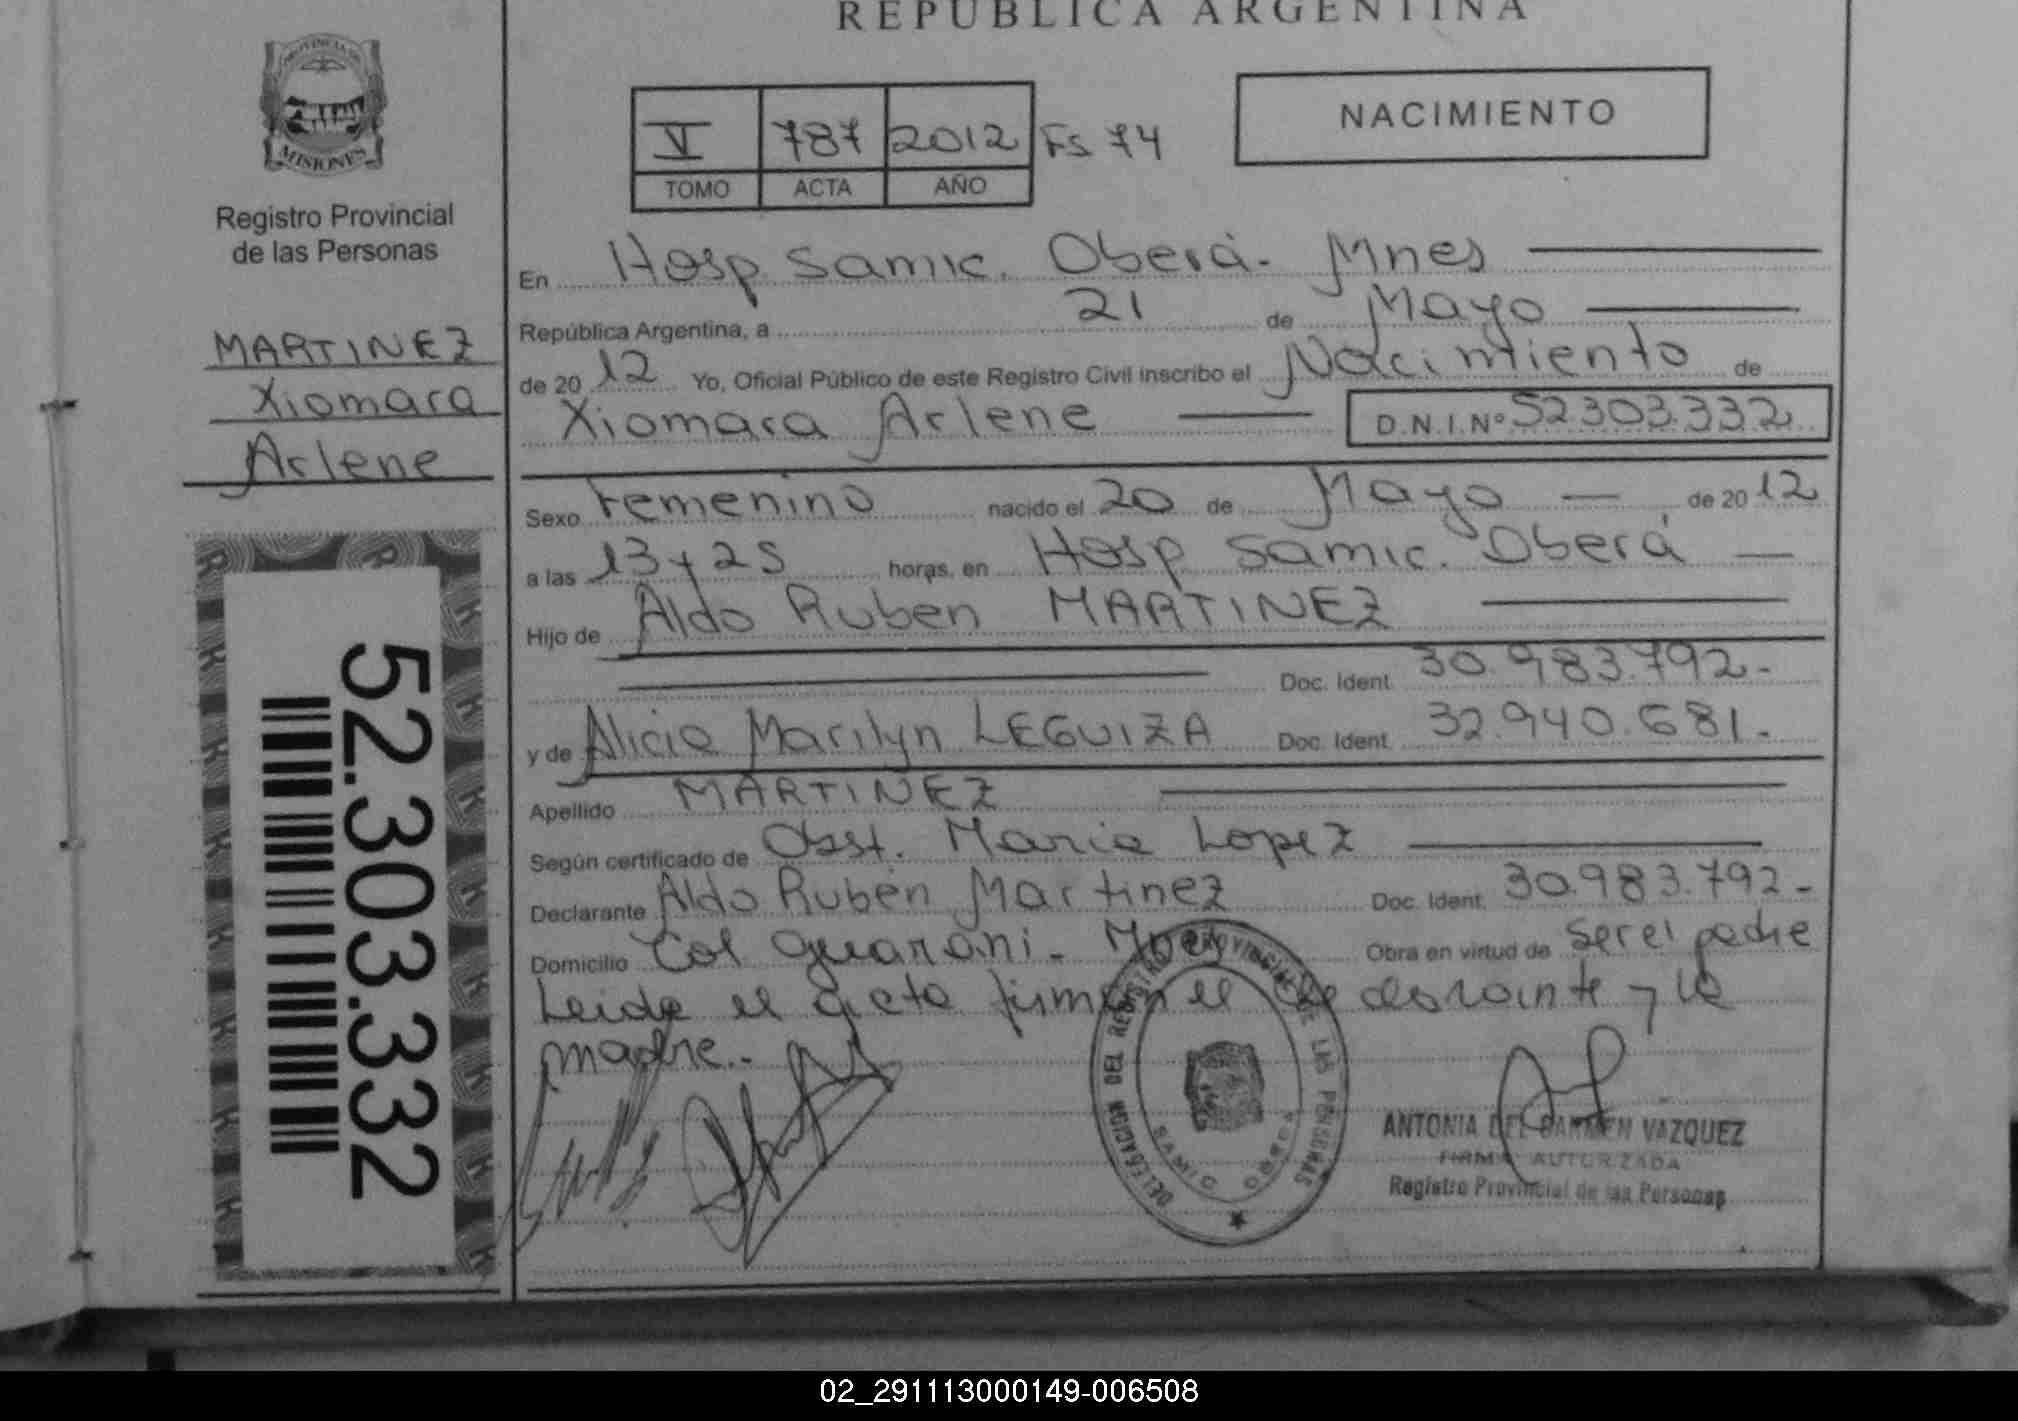 REPUBLICA ARGENTINA
PROVINCIA DE
MISIONES
Registro Provincial
de las Personas
MARTINEZ
Xiomara
Arlene
52.303.332
V 787 2012 Fs 74
TOMO ACTA AÑO
NACIMIENTO
En Hosp Samic. Oberá - Mnes
República Argentina, a 21 de Mayo
de 20 12 Yo, Oficial Público de este Registro Civil inscribo el Nacimiento de
Xiomara Arlene D.N.I.Nº 52.303.332
Sexo Femenino nacido el 20 de Mayo de 20 12
a las 13 y 25 horas, en Hosp Samic. Oberá
Hijo de Aldo Ruben MARTINEZ
Doc. Ident. 30.983.792.-
y de Alicia Marilyn LEGUIZA Doc. Ident. 32.940.681.-
Apellido MARTINEZ
Según certificado de Obst. Maria Lopez
Declarante Aldo Rubén Martinez Doc. Ident. 30.983.792.-
Domicilio Col Guarani - Mnes Obra en virtud de ser el padre
Leida el acta firman el declarante y la
madre.-
DELEGACION DEL REGISTRO PROVINCIAL DE LAS PERSONAS
SAMIC OBERA
ANTONIA DEL CARMEN VAZQUEZ
FIRMA AUTORIZADA
Registro Provincial de las Personas
02_291113000149-006508